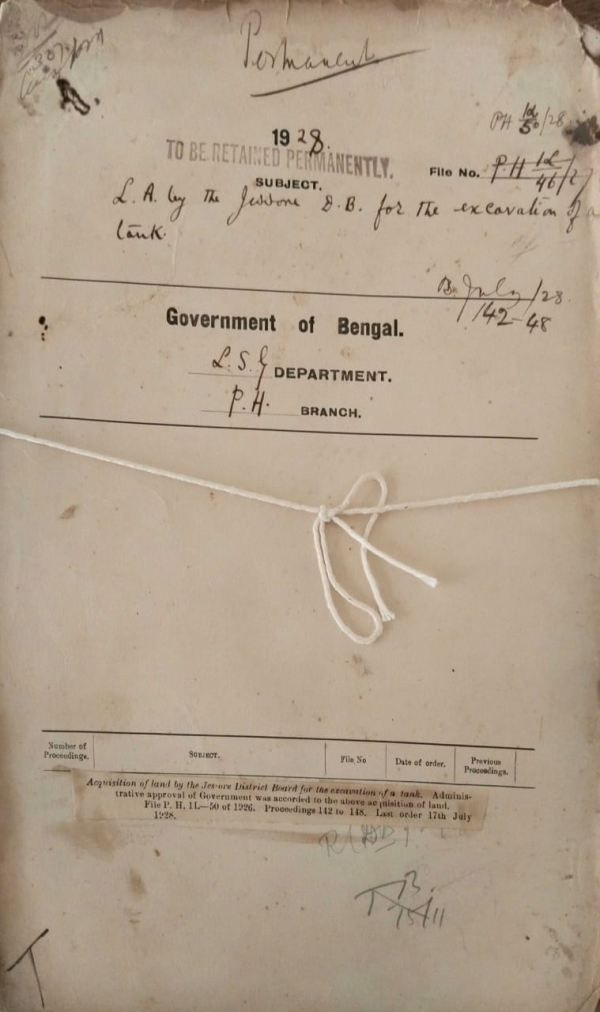 Permanent
PH 1L/50/28
1928.
TO BE RETAINED PERMANENTLY.
File No. P.H 1L/46/2
SUBJECT.
L. A. by the Jessore D.B. for the excavation of a
tank.
B. July/28
142-48
Government of Bengal.
L. S. G DEPARTMENT.
P. H. BRANCH.
Number of Proceedings. SUBJECT. File No Date of order. Previous Proceedings.
Acquisition of land by the Jessore District Board for the excavation of a tank. Adminis-
trative approval of Government was accorded to the above acquisition of land.
File P. H. 1L—50 of 1926. Proceedings 142 to 148. Last order 17th July
1928.